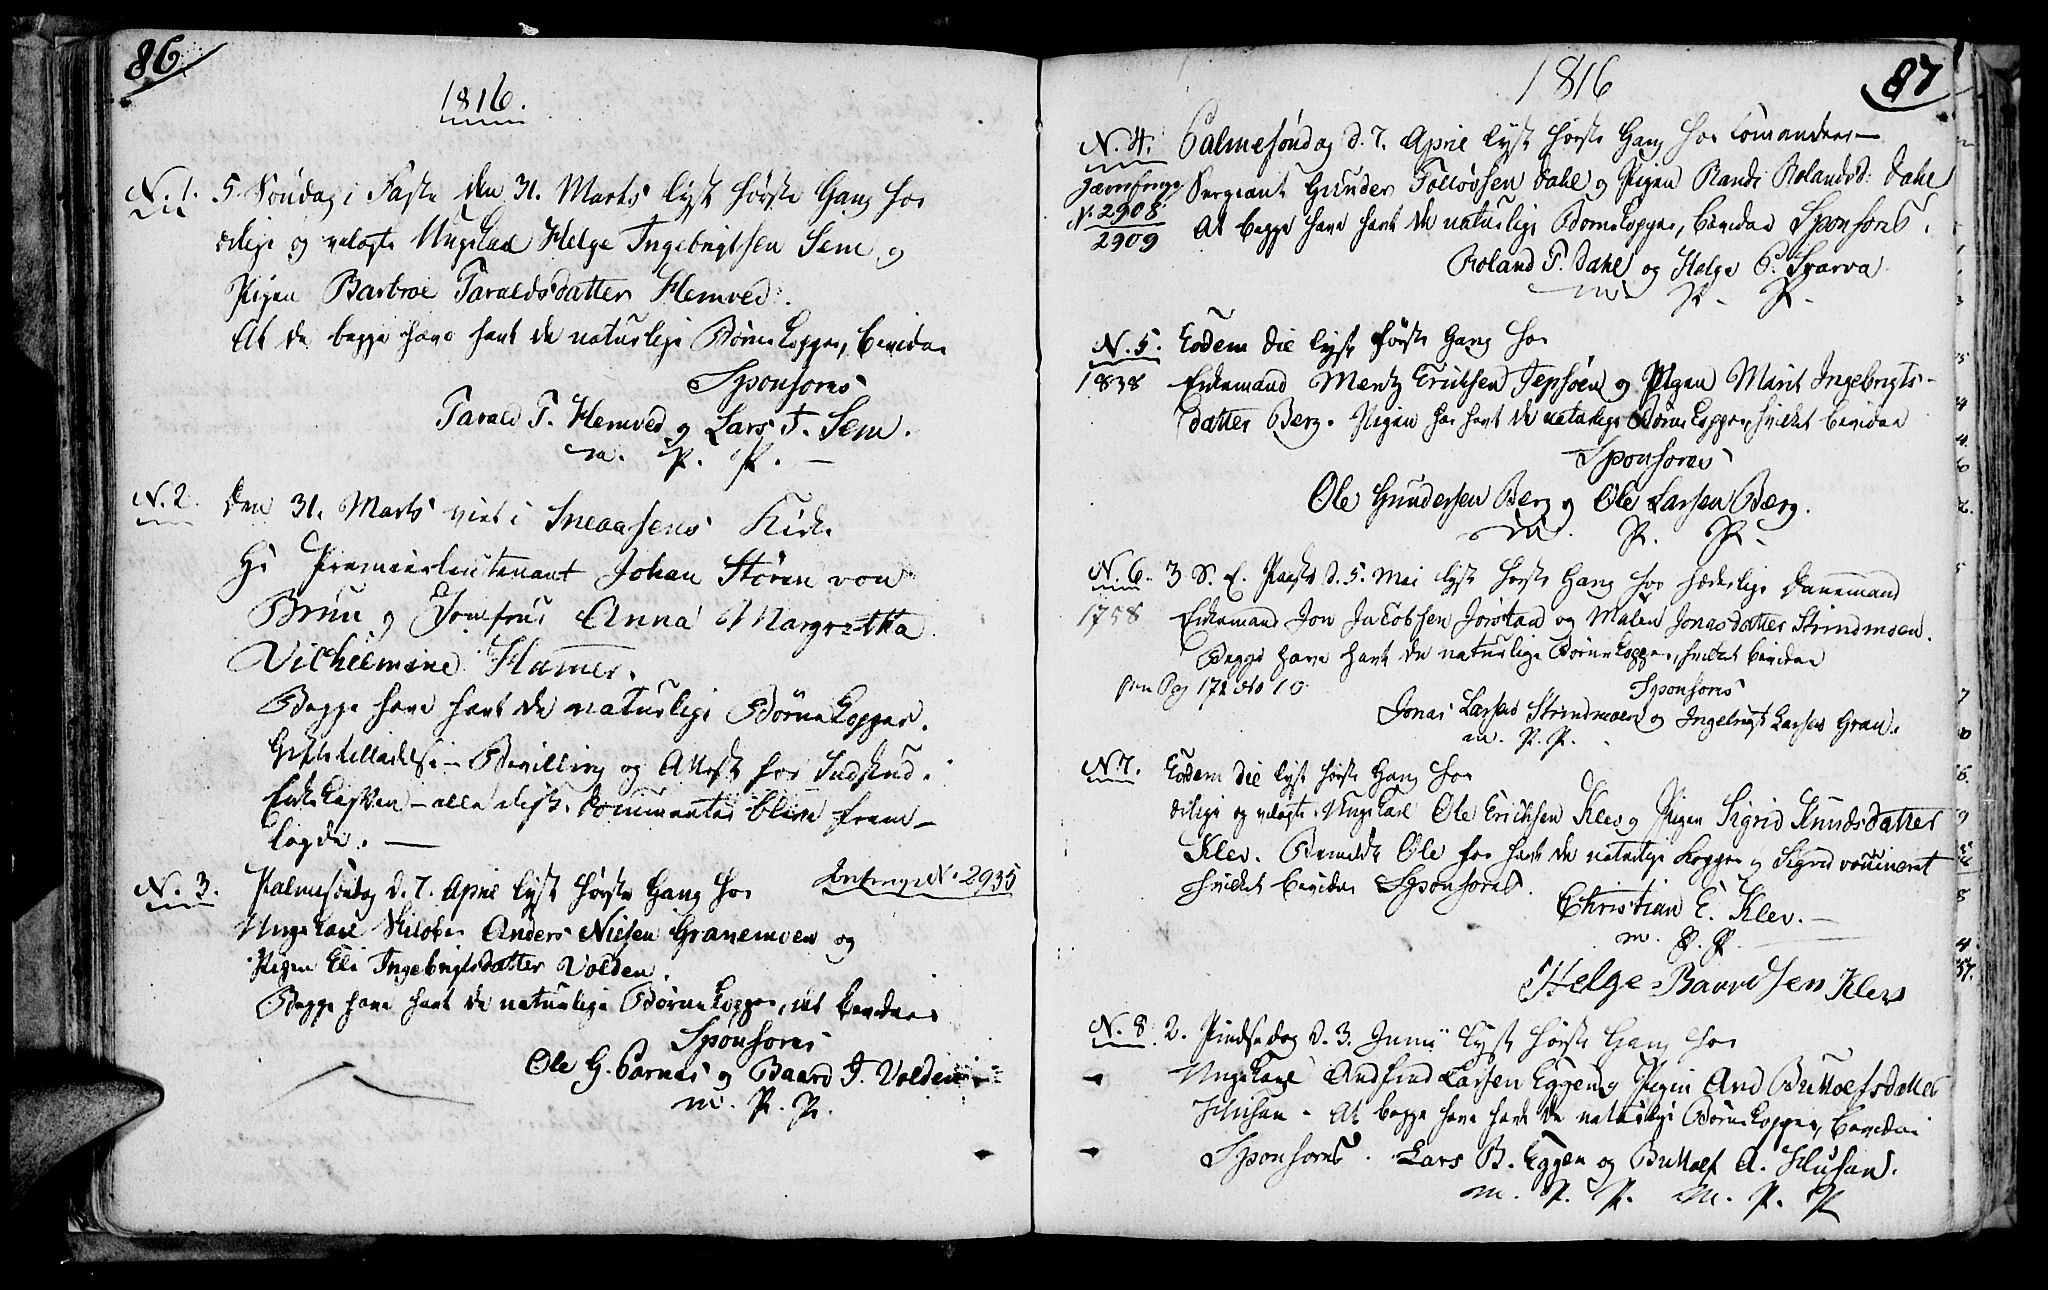 86
1816.
N. 1. 5 Søndag i Faste den 31. Marts lyst første Gang for
ærlige og velagte Ungkarl Helge Ingebrigtsen Sem og
Pigen Barbroe Taraldsdatter Hemved.
At de begge have havt de naturlige Børnekopper, bevidne
Sponsores
Tarald T. Hemved og Lars T. Sem.
m. P. P.
N. 2. Den 31. Marts viet i Sneaasens Kirke
Hr Premierleutenant Johan Støren von
Brun og Jomfrue Anna Margretha
Vilhelmine Hamer.
Begge have havt de naturlige Børnekopper.
Giftetilladelse - Bevilling og Attest for Indskud i
Enkekassen - alle disse Documenter bleve frem-
lagde.
N. 3. Palmesøndag d. 7. April lyst første Gang for
N. 2935
Ungkarl Skiløber Anders Nielsen Granemoen og
Pigen Eli Ingebrigtsdatter Volden.
Begge have havt de naturlige Børnekopper, det bevidner
Sponsores
Ole G. Parnas og Baard J. Volden
m. P. P.
1816
87
N. 4. Palmesøndag d. 7. April lyst første Gang for Comandeer-
Sergeant Gunder Tollovsen Dahl og Pigen Randi Rolandsd: Dahl
N. 2908
2909
At begge have havt de naturlige Børnekopper, bevidne Sponsores.
Roland T. Dahl og Helge P. Sparva
m. P. P.
N. 5. Eodem die lyst første Gang for
1838 Enkemand Mentz Ericksen Jepsøen og Pigen Marit Ingebrigts-
datter Berg. Pigen har havt de naturlige Børnekopper, hvilket bevidne
Sponsores
Ole Gundersen Berg og Ole Larsen Berg.
m. P. P.
N. 6. 3 S. e. Paaske d. 5. Mai lyst første Gang for hæderlige Dannemand
1758 Enkemand Jon Jacobsen Jørstad og Malen Jonasdatter Strindmoen.
Begge have havt de naturlige Børnekopper, hvilket bevidne
Pag 172 No 10
Sponsores
Jonas Larsen Strindmoen og Ingebrigt Larsen Gran.
m. P. P.
N 7. Eodem die lyst første Gang for
ærlige og velagte Ungkarl Ole Ericksen Klev og Pigen Sigrid Knudsdatter
Klev. Bemeldte Ole har havt de naturlige Kopper og Sigrid vaccineret
hvilket bevidne Sponsores.
Christian E. Klev.
m. P. P.
Helge Baardsen Klev
N. 8. 2. Pindsedag d. 3. Junii lyst første Gang for
Ungkarl Andfind Larsen Eggen og Pigen And Buttolfsdatter
Husan. At begge have havt de naturlige Børnekopper, bevidne
Sponsores. Lars B. Eggen og Buttolf A. Husan.
m. P. P. m. P. P